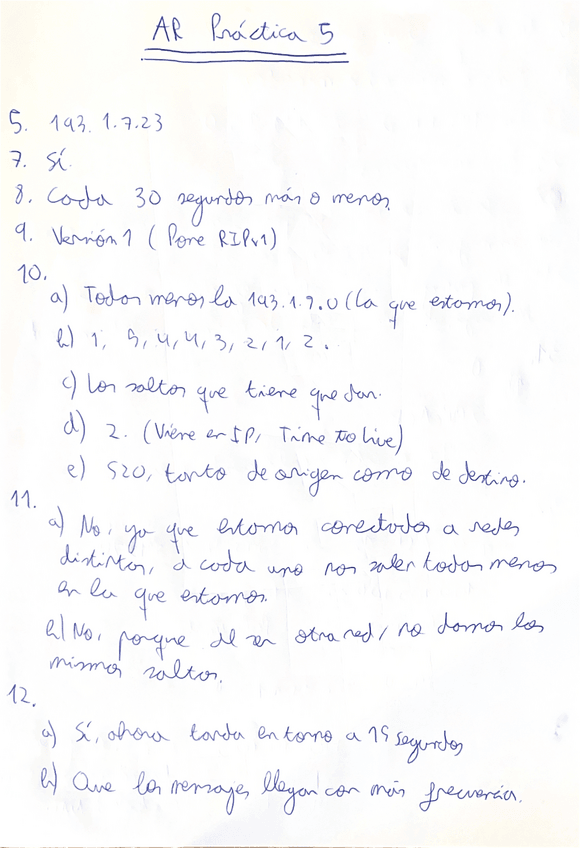 AR Práctica 5
5. 193.1.7.23
7. Sí.
8. Cada 30 segundos más o menos.
9. Versión 1 (Pone RIPv1)
10.
a) Todas menos la 193.1.9.0 (la que estamos).
b) 1, 5, 4, 4, 3, 2, 1, 2.
c) Los saltos que tiene que dar.
d) 2. (Viene en IP, Time to live)
e) 520, tanto de origen como de destino.
11.
a) No, ya que estamos conectados a redes
distintas, a cada uno nos salen todas menos
en la que estamos.
b) No, porque al ser otra red, no damos los
mismos saltos.
12.
a) Sí, ahora tarda en torno a 15 segundos
b) Que los mensajes llegan con más frecuencia.